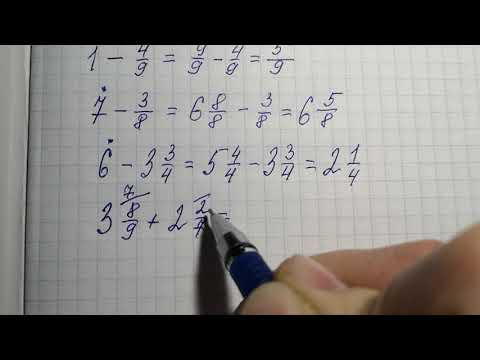 1 - 4/9 = 9/9 - 4/9 = 5/9
7 - 3/8 = 6 8/8 - 3/8 = 6 5/8
6 - 3 3/4 = 5 4/4 - 3 3/4 = 2 1/4
7
3 8/9 + 2 2/7 =